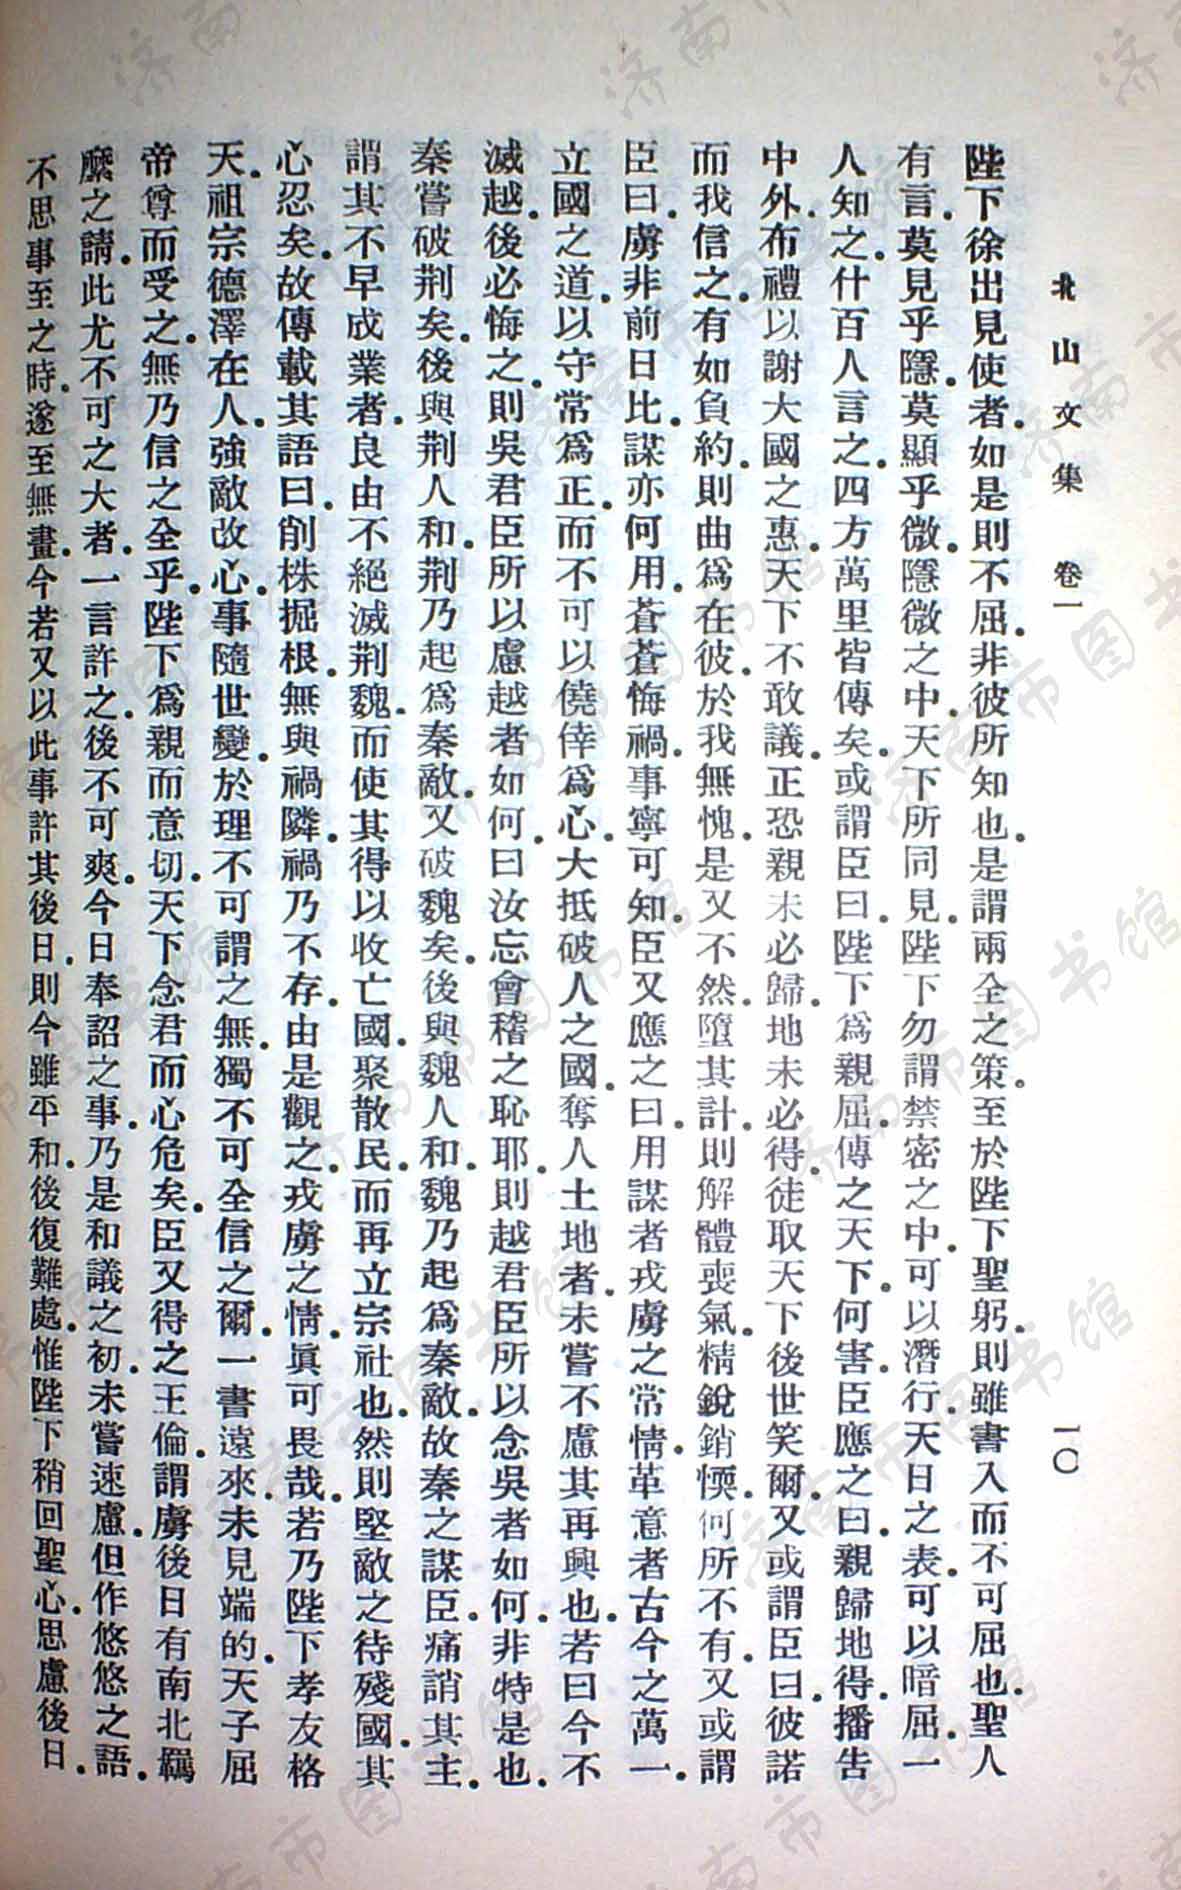 北山文集 卷一 一〇
陛下徐出見使者.如是則不屈.非彼所知也.是謂兩全之策.至於陛下聖躬.則雖書入而不可屈也.聖人
有言.莫見乎隱.莫顯乎微.隱微之中.天下所同見.陛下勿謂禁密之中.可以潛行.天日之表.可以暗屈.一
人知之.什百人言之.四方萬里皆傳矣.或謂臣曰.陛下爲親屈.傳之天下.何害.臣應之曰.親歸地得.播告
中外.布禮以謝大國之惠.天下不敢議.正恐親未必歸.地未必得.徒取天下後世笑爾.又或謂臣曰.彼諾
而我信之.有如負約.則曲爲在彼.於我無愧.是又不然.墮其計.則解體喪氣.精銳銷愞.何所不有.又或謂
臣曰.虜非前日比.謀亦何用.蒼蒼悔禍.事寧可知.臣又應之曰.用謀者戎虜之常情.革意者古今之萬一.
立國之道.以守常爲正.而不可以僥倖爲心.大抵破人之國.奪人土地者.未嘗不慮其再興也.若曰今不
滅越.後必悔之.則吳君臣所以慮越者如何.曰汝忘會稽之恥耶.則越君臣所以念吳者如何.非特是也.
秦嘗破荆矣.後與荆人和.荆乃起爲秦敵.又破魏矣.後與魏人和.魏乃起爲秦敵.故秦之謀臣.痛誚其主.
謂其不早成業者.良由不絕滅荆魏.而使其得以收亡國.聚散民.而再立宗社也.然則堅敵之待殘國.其
心忍矣.故傳載其語曰.削株掘根.無與禍隣.禍乃不存.由是觀之.戎虜之情.眞可畏哉.若乃陛下孝友格
天.祖宗德澤在人.強敵改心.事隨世變.於理不可謂之無.獨不可全信之爾.一書遠來.未見端的.天子屈
帝尊而受之.無乃信之全乎.陛下爲親而意切.天下念君而心危矣.臣又得之王倫.謂虜後日有南北羈
縻之請.此尤不可之大者.一言許之.後不可爽.今日奉詔之事.乃是和議之初.未嘗速慮.但作悠悠之語.
不思事至之時.遂至無畫.今若又以此事許其後日.則今雖平和.後復難處.惟陛下稍回聖心.思慮後日.